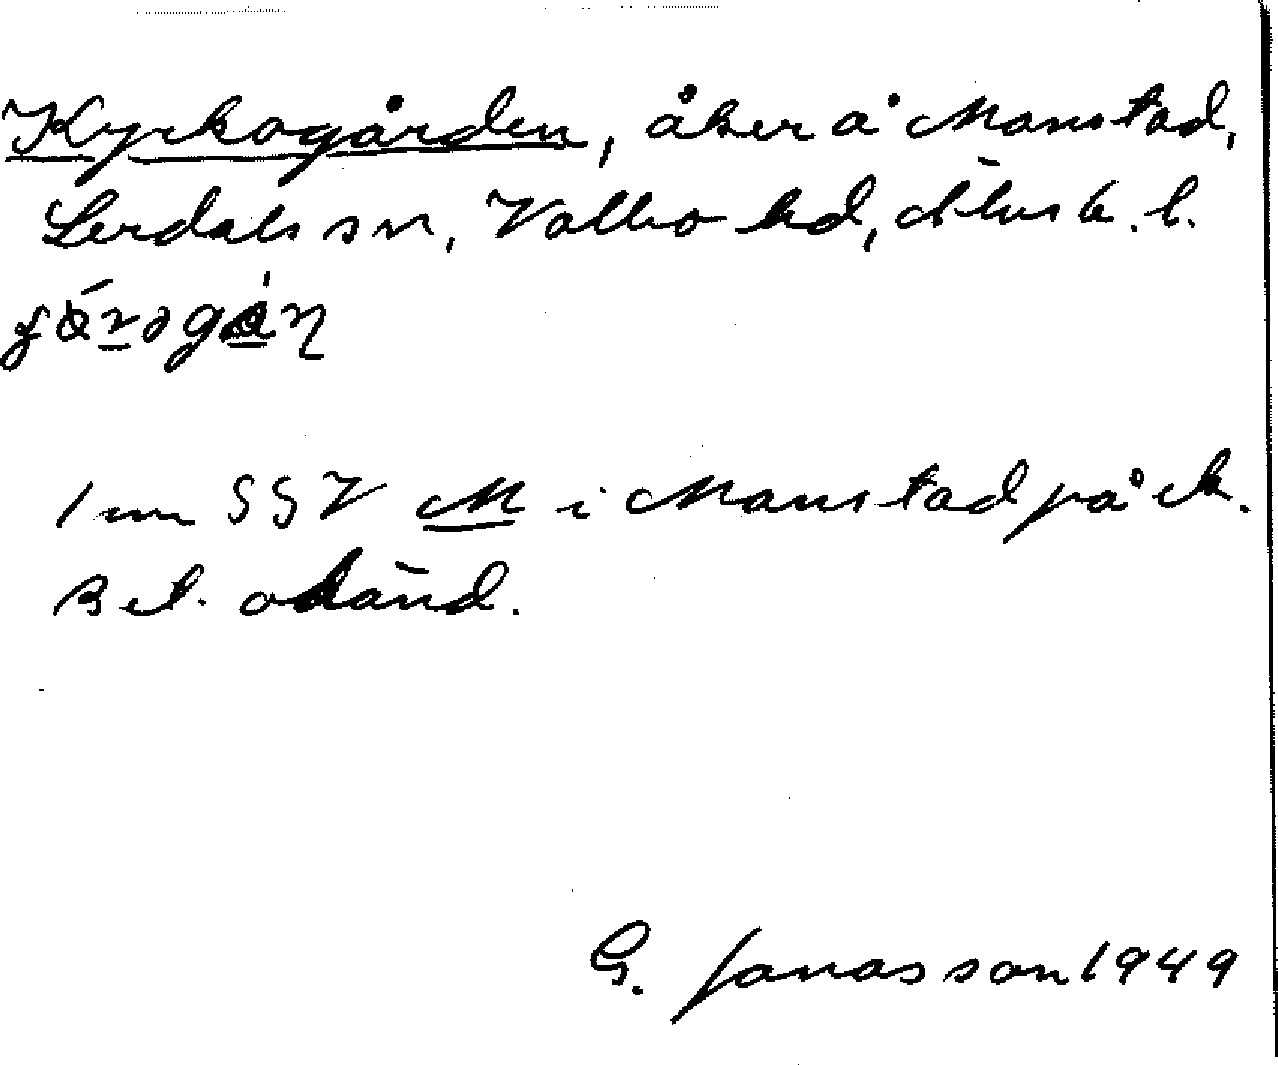 Kyrkogården, åker å Manstad,
Lerdals sn, Valbo hd, Älvsb. l.
1 mm SSV M i Manstad på ek.
Bet. okänd.
G. Jonasson 1949